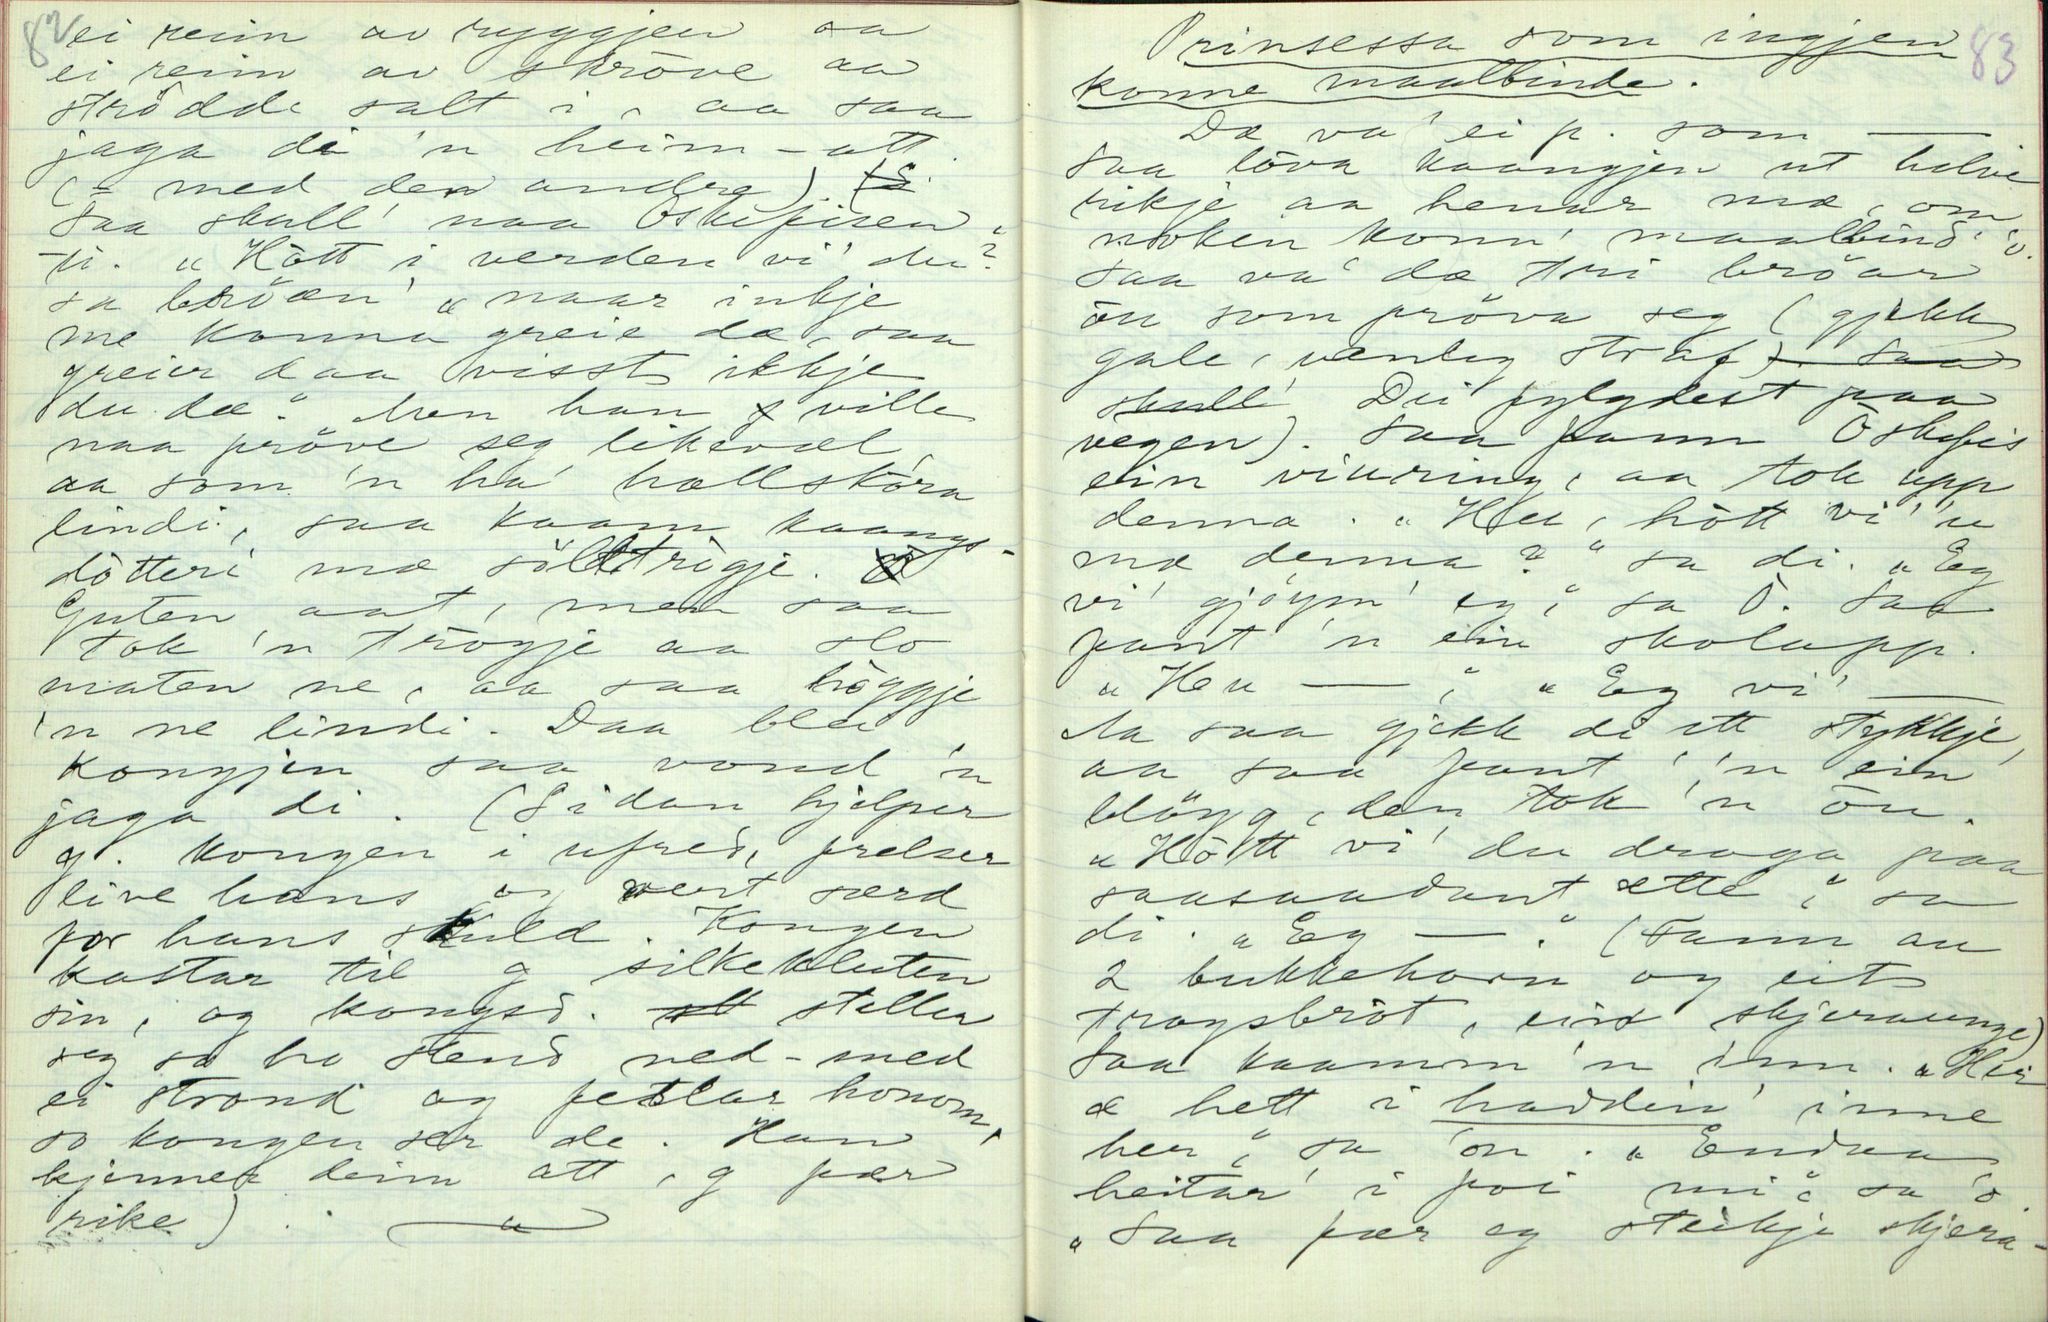 82
ei reim av ryggjen aa
ei reim av skröve aa
strödde salt i, aa saa
jaga di 'n heim-att.
(= med den andre)
Saa skull' naa Öskefisen
ti. "Hött i verden vi' du?"
sa bröæn', "naar inkje
me konna greie dæ, saa
greier daa visst ikkje
du dæ." Men han ville
naa pröve seg likevæl,
aa som 'n ha' hallskóra
lindi, saa kaam kaangs-
dötteri mæ sölvtrögje.
Guten aat, men saa
tok 'n trögje aa slo
maten ne, aa saa höggje
'n ne lindi. Daa blei
kongjen saa vond 'n
jaga di. (Sidan hjelper
g. kongen i ufred, frelser
live hans og vert særd
for hans skuld. Kongen
kastar til g silkekluten
sin, og kongsd. steller
seg so ho stend ned-med
ei strond og fetlar honom,
so kongen ser de. Han
kjenner deim att, g fær
rike).
83
Prinsessa som ingjen
konne maalbinde.
Dæ va' ei p. som —
Saa löva kaangjen ut halve
rikje aa henar mæ, om
noken konn' maalbind' 'o.
Saa va' dæ tri bröar
öu som pröva seg (gjekk
gale, vanleg straf). Saa
skull' Dei fylgdest paa
vegen). Saa fann Öskefis
ein viuring, aa tok upp
denna. "Heu, hött vi' 'u
mæ denna?" sa di. "Eg
vi' gjöym' eg," sa Ö. Saa
fant 'n ein skolapp.
"Heu —," "Eg vi' —
Aa saa gjekk di ett stykkje,
aa saa fant' 'n ein
blöyg, den tok 'n öu.
"Hött vi' du draga paa
saasaadant ætte," sa
di. "Eg —." (Fann au
2 bukkehorn og eit
trogsbrot, ein skjeraunge)
Saa kaamm 'n inn. "Her
æ hett i haddin' inne
her," sa 'n. "Endaa
heitar' i foi mi," sa 'o
"Saa fær eg steikje skjera-